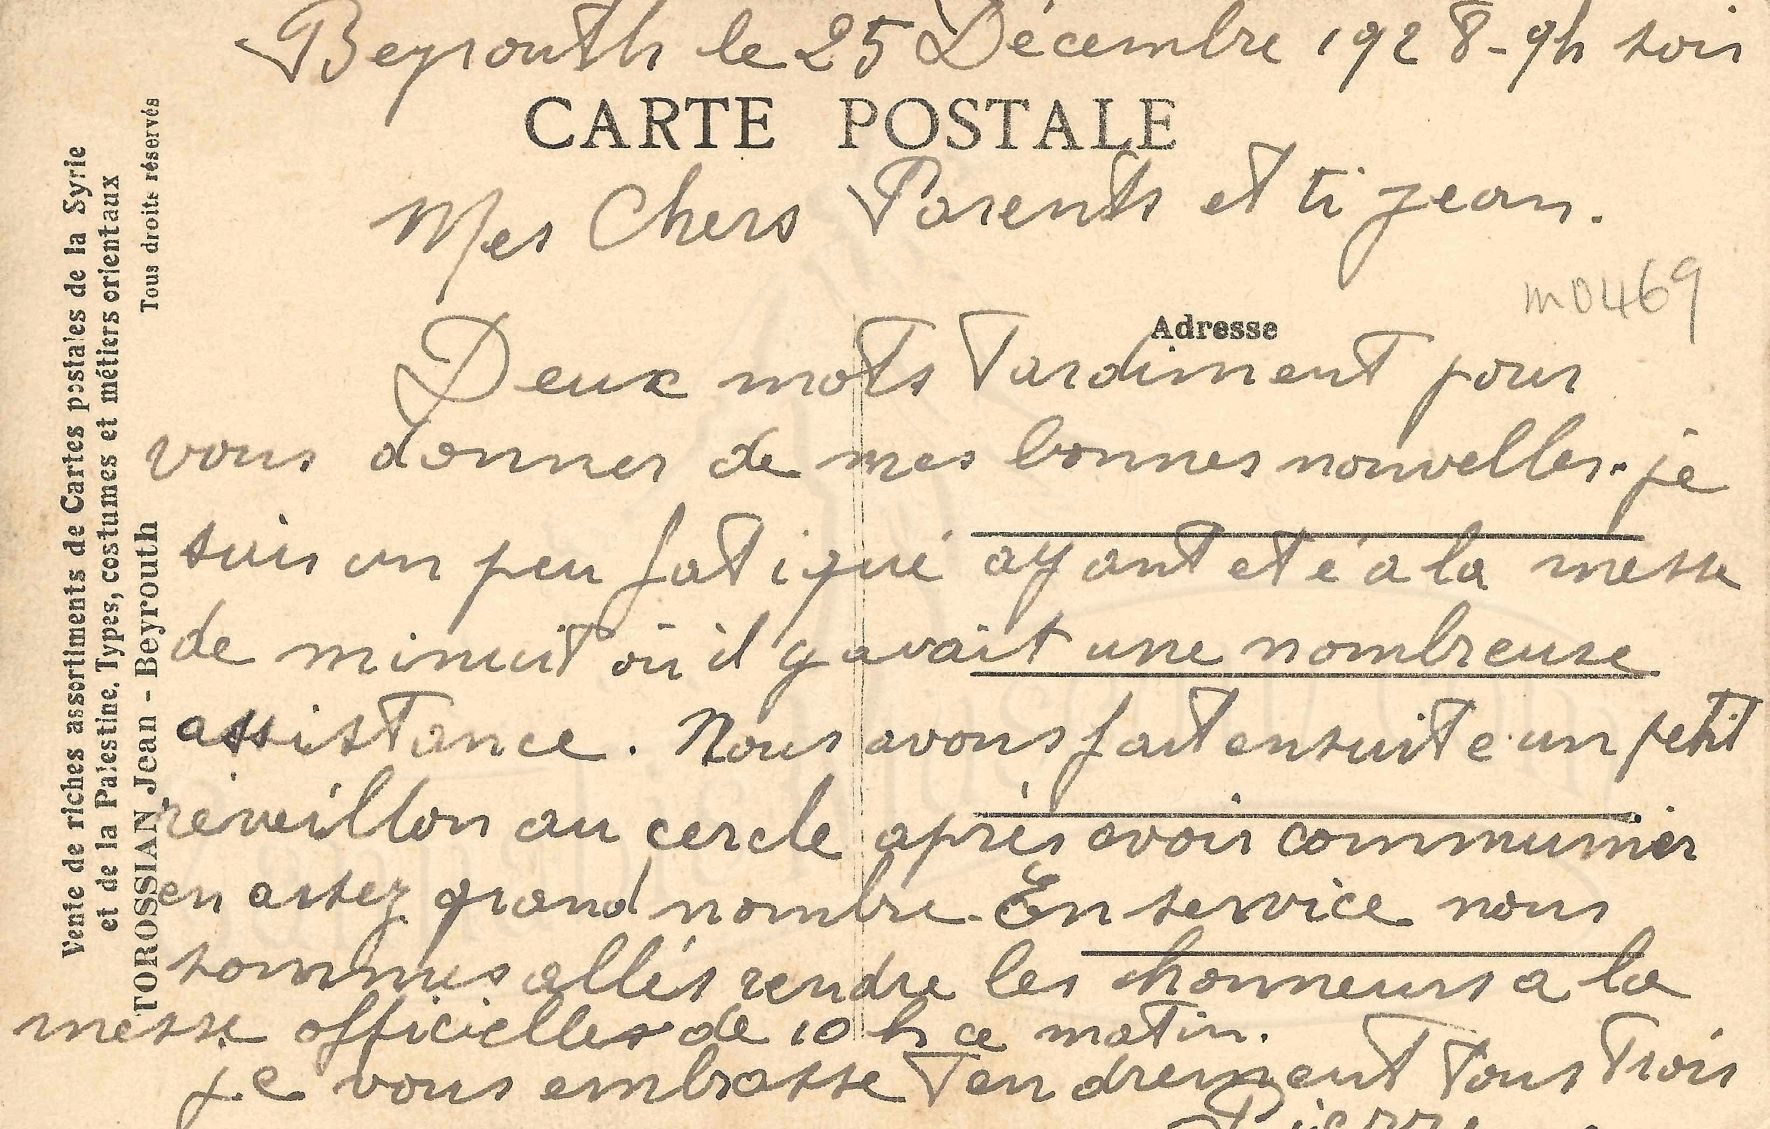 Beyrouth le 25 Décembre 1928 - 9h soir
CARTE POSTALE
Mes Chers Parents et ti jean.
m0469
Adresse
Deux mots Tardiment pour
vous donner de mes bonnes nouvelles. je
suis un peu fatigué ayant eté a la messe
de minuit où il y avait une nombreuse
assistance. Nous avons fait ensuite un petit
réveillon au cercle après avoir communier
en assez grand nombre. En service nous
sommes allés rendre les honneurs a la
messe officielles de 10 h ce matin.
je vous embrasse Tendrement Tous Trois
Pierre
Vente de riches assortiments de Cartes postales de la Syrie
et de la Palestine, Types, costumes et métiers orientaux
TOROSSIAN Jean - Beyrouth Tous droits réservés